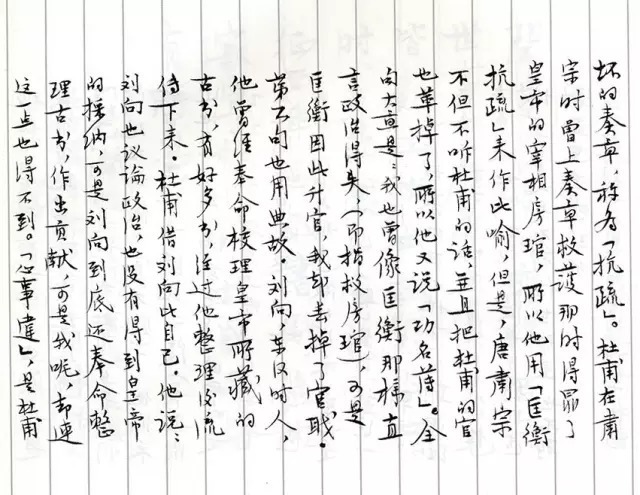 坏的奏章，称为「抗疏」。杜甫在肃
宗时曾上奏章救护那时得罪了
皇帝的宰相房琯，所以他用「匡衡
抗疏」来作比喻，但是，唐肃宗
不但不听杜甫的话，并且把杜甫的官
也革掉了，所以他又说「功名薄」。全
句大意是：我也曾像匡衡那样直
言政治得失，（即指救房琯），可是
匡衡因此升官，我却丢掉了官职。
第六句也用典故。刘向，东汉时人，
他曾经奉命校理皇帝所藏的
古书，有好多书，经过他整理后流
传下来。杜甫借刘向比自己。他说：
刘向也议论政治，也没有得到皇帝
的采纳，可是刘向到底还奉命整
理古书，作出贡献，可是我呢，却连
这一点也得不到。「心事违」，是杜甫